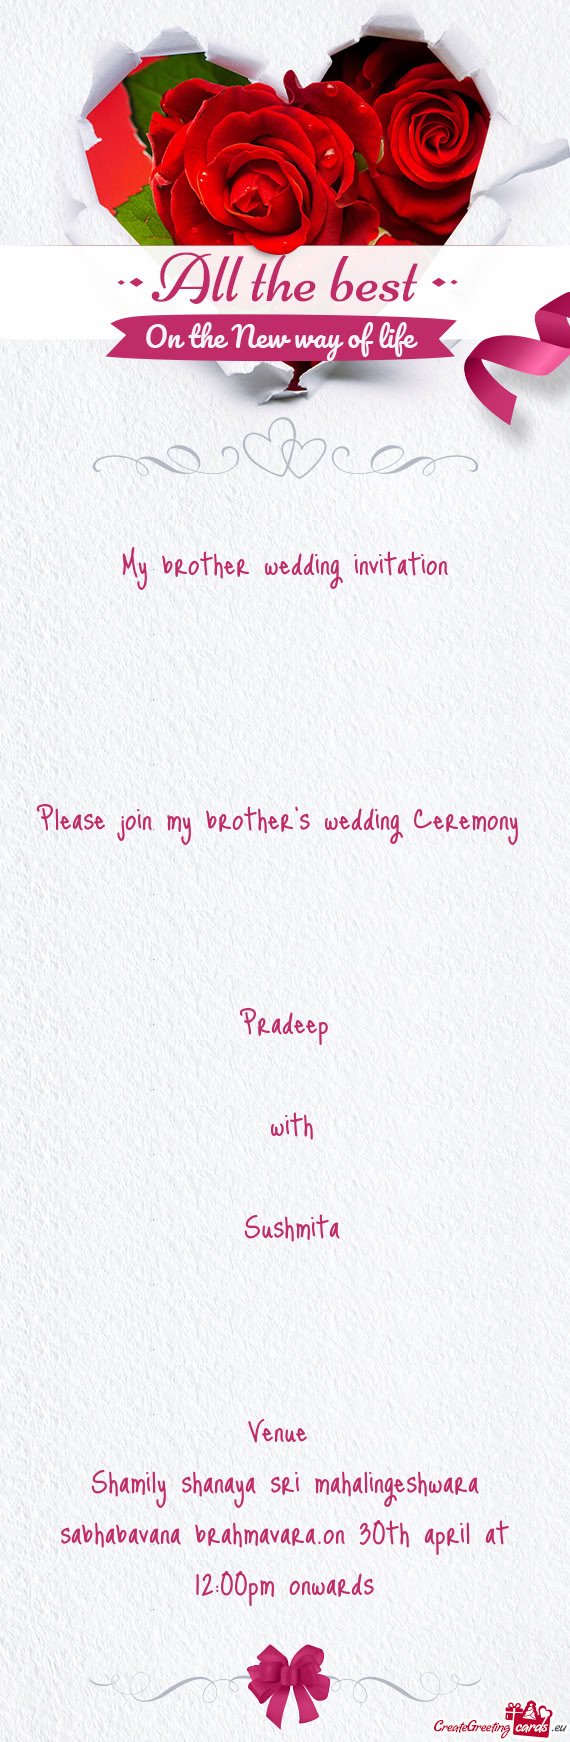 All the best
On the New way of life
My brother wedding invitation
Please join my brother's wedding Ceremony
Pradeep
with
Sushmita
Venue
Shamily shanaya sri mahalingeshwara
sabhabavana brahmavara.on 30th april at
12:00pm onwards
CreateGreetingcards.eu